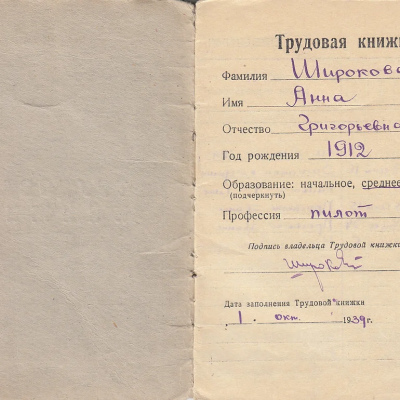 Трудовая книжк
Фамилия Широкова
Имя Анна
Отчество Григорьевна
Год рождения 1912
Образование: начальное, среднее
(подчеркнуть)
Профессия пилот
Подпись владельца Трудовой книжки
Дата заполнения Трудовой книжки
1. окт. 1939г.